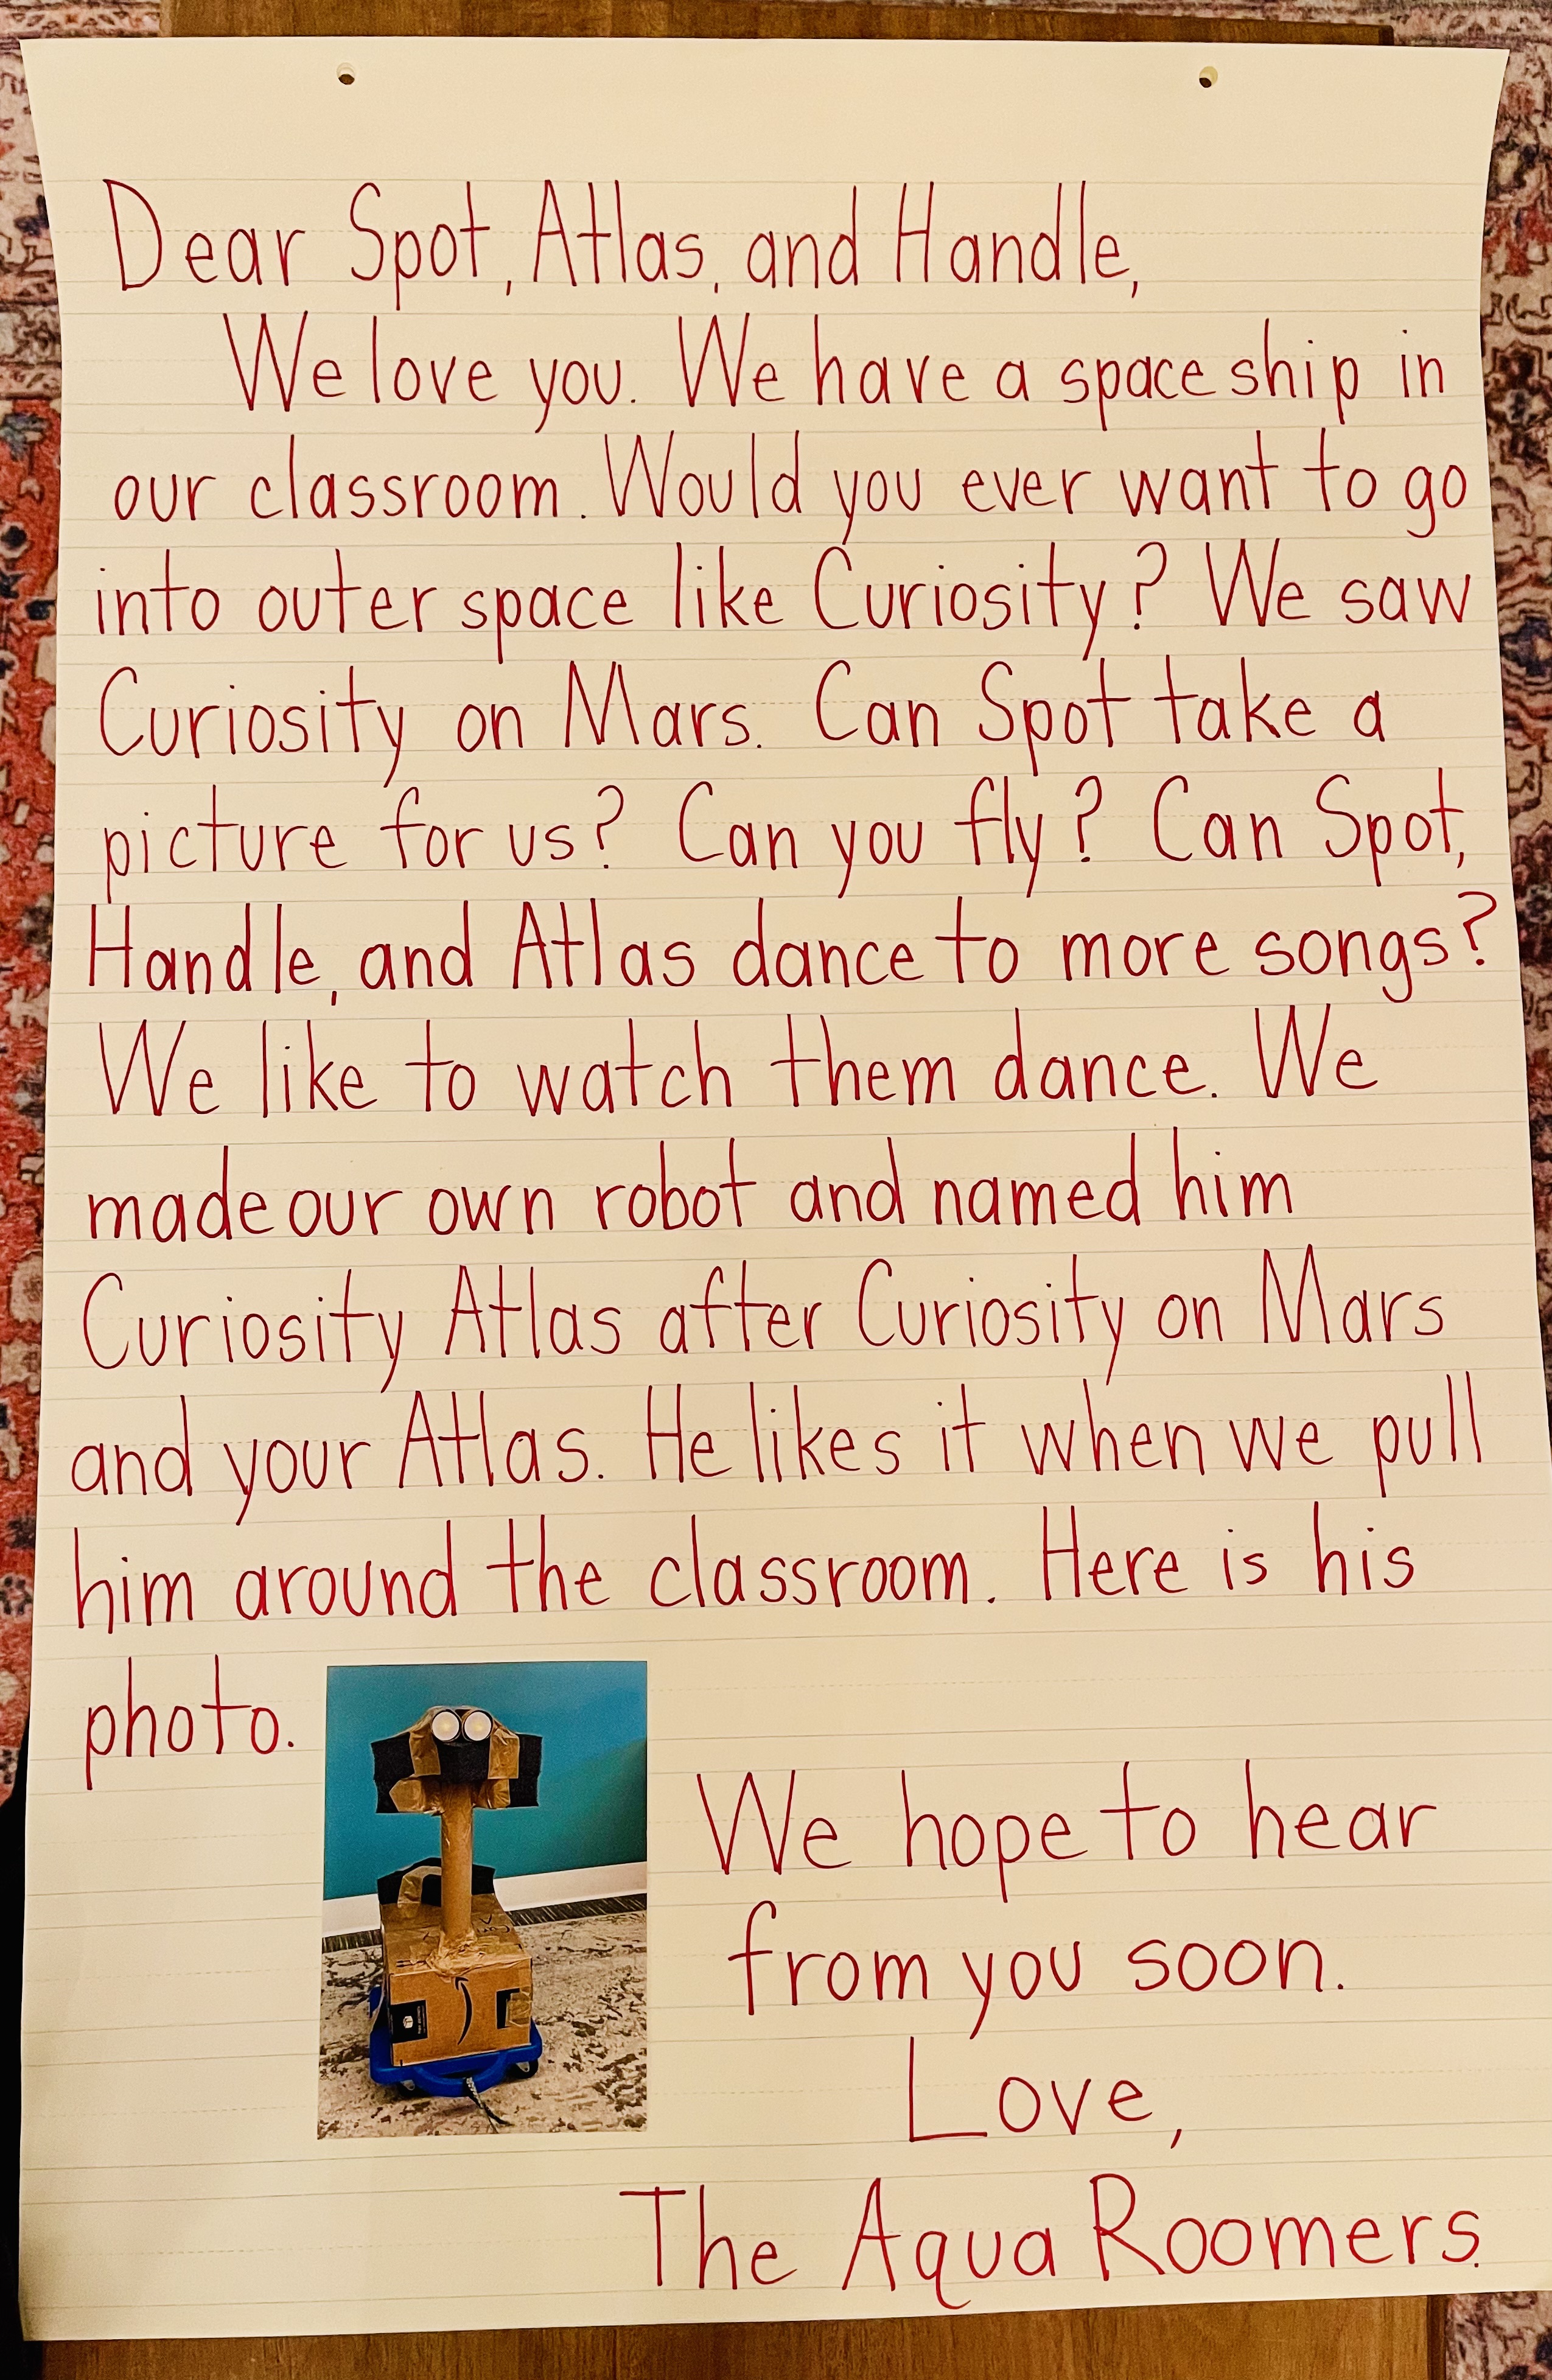 Dear Spot, Atlas, and Handle,
We love you. We have a spaceship in
our classroom. Would you ever want to go
into outer space like Curiosity? We saw
Curiosity on Mars. Can Spot take a
picture for us? Can you fly? Can Spot,
Handle, and Atlas dance to more songs?
We like to watch them dance. We
made our own robot and named him
Curiosity Atlas after Curiosity on Mars
and your Atlas. He likes it when we pull
him around the classroom. Here is his
photo.
We hope to hear
from you soon.
Love,
The Aqua Roomers.